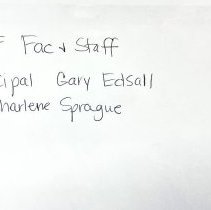 F Fac & Staff
cipal Gary Edsall
harlene Sprague